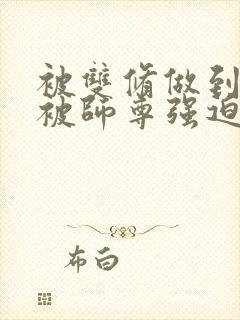 被雙脩做到
被師尊强迫
布白